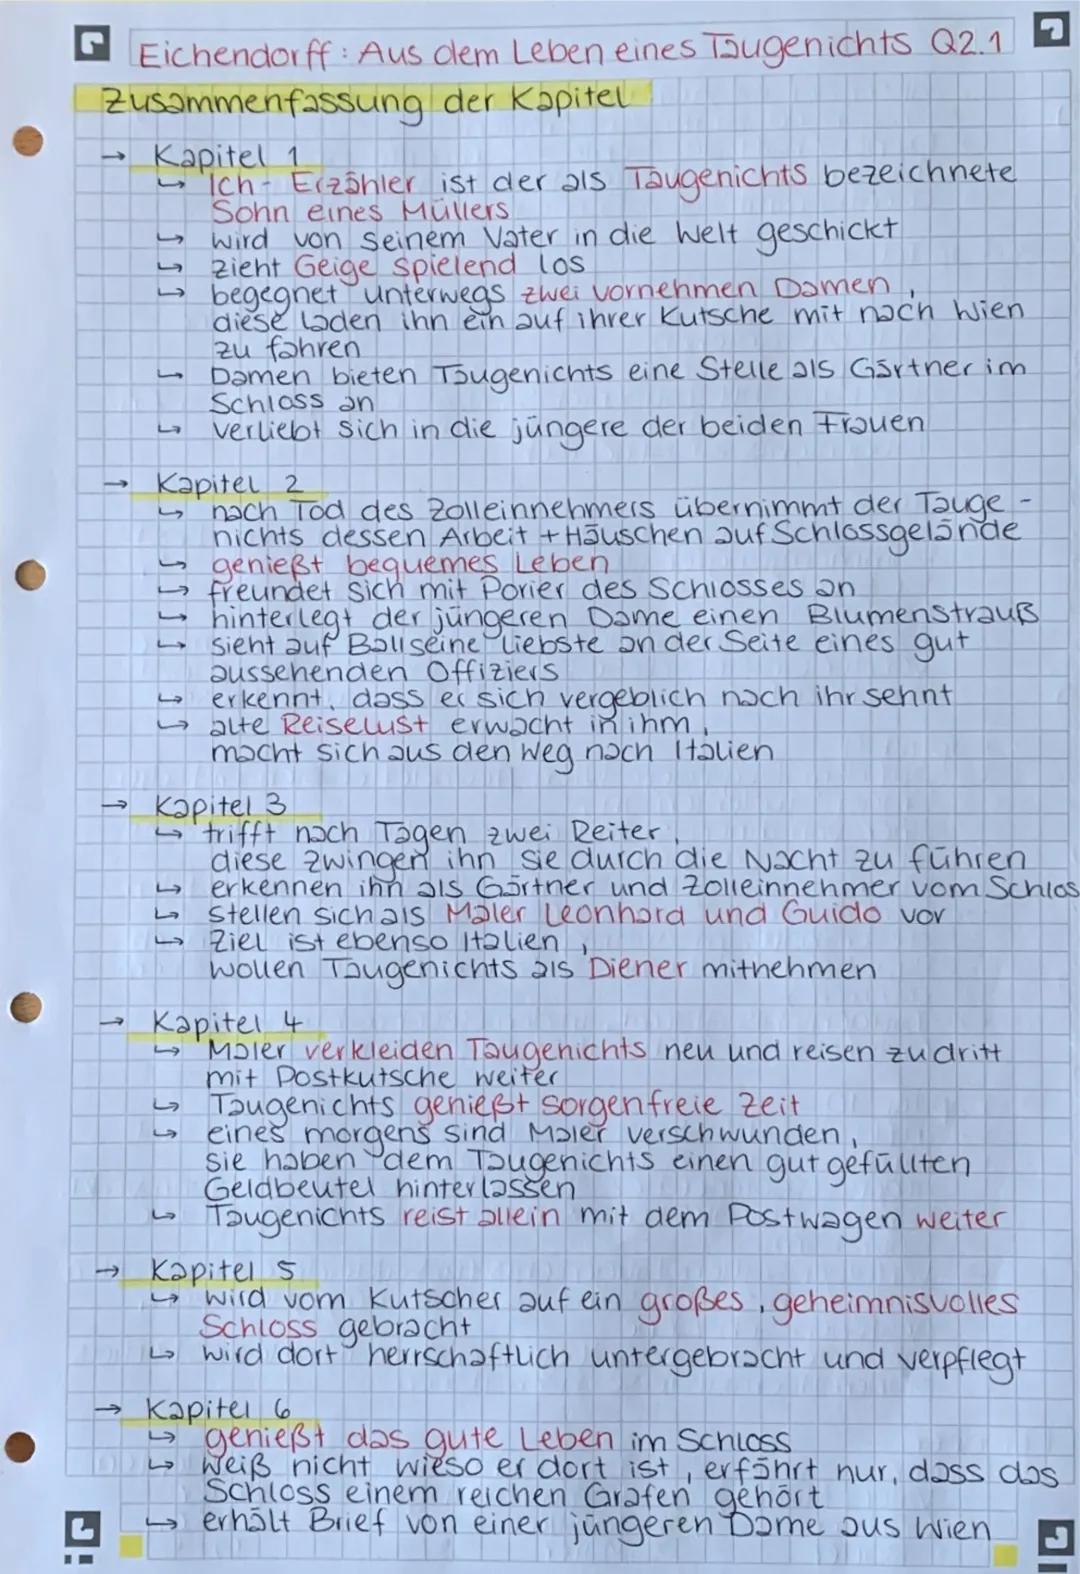 Eichendorff: Aus dem Leben eines Taugenichts Q2.1
Zusammenfassung der Kapitel
→ Kapitel 1
↳ Ich-Erzähler ist der als Taugenichts bezeichnete
Sohn eines Müllers
↳ wird von seinem Vater in die Welt geschickt
↳ zieht Geige spielend los
↳ begegnet unterwegs zwei vornehmen Damen,
diese laden ihn ein auf ihrer Kutsche mit nach Wien
zu fahren
↳ Damen bieten Taugenichts eine Stelle als Gärtner im
Schloss an
↳ verliebt sich in die jüngere der beiden Frauen
→ Kapitel 2
↳ nach Tod des Zolleinnehmers übernimmt der Tauge-
nichts dessen Arbeit + Häuschen auf Schlossgelände
↳ genießt bequemes Leben
↳ freundet sich mit Porier des Schlosses an
↳ hinterlegt der jüngeren Dame einen Blumenstrauß
↳ sieht auf Ball seine Liebste an der Seite eines gut
aussehenden Offiziers
↳ erkennt, dass er sich vergeblich nach ihr sehnt
↳ alte Reiselust erwacht in ihm,
macht sich aus den Weg nach Italien
→ Kapitel 3
↳ trifft nach Tagen zwei Reiter,
diese zwingen ihn sie durch die Nacht zu führen
↳ erkennen ihn als Gärtner und Zolleinnehmer vom Schlos
↳ stellen sich als Maler Leonhard und Guido vor
↳ Ziel ist ebenso Italien,
wollen Taugenichts als Diener mitnehmen
→ Kapitel 4
↳ Maler verkleiden Taugenichts neu und reisen zu dritt
mit Postkutsche weiter
↳ Taugenichts genießt sorgenfreie Zeit
↳ eines morgens sind Maler verschwunden,
sie haben dem Taugenichts einen gut gefüllten
Geldbeutel hinterlassen
↳ Taugenichts reist allein mit dem Postwagen weiter
→ Kapitel 5
↳ wird vom Kutscher auf ein großes, geheimnisvolles
Schloss gebracht
↳ wird dort herrschaftlich untergebracht und verpflegt
→ Kapitel 6
↳ genießt das gute Leben im Schloss
↳ weiß nicht wieso er dort ist, erfährt nur, dass das
Schloss einem reichen Grafen gehört
↳ erhält Brief von einer jüngeren Dame aus Wien